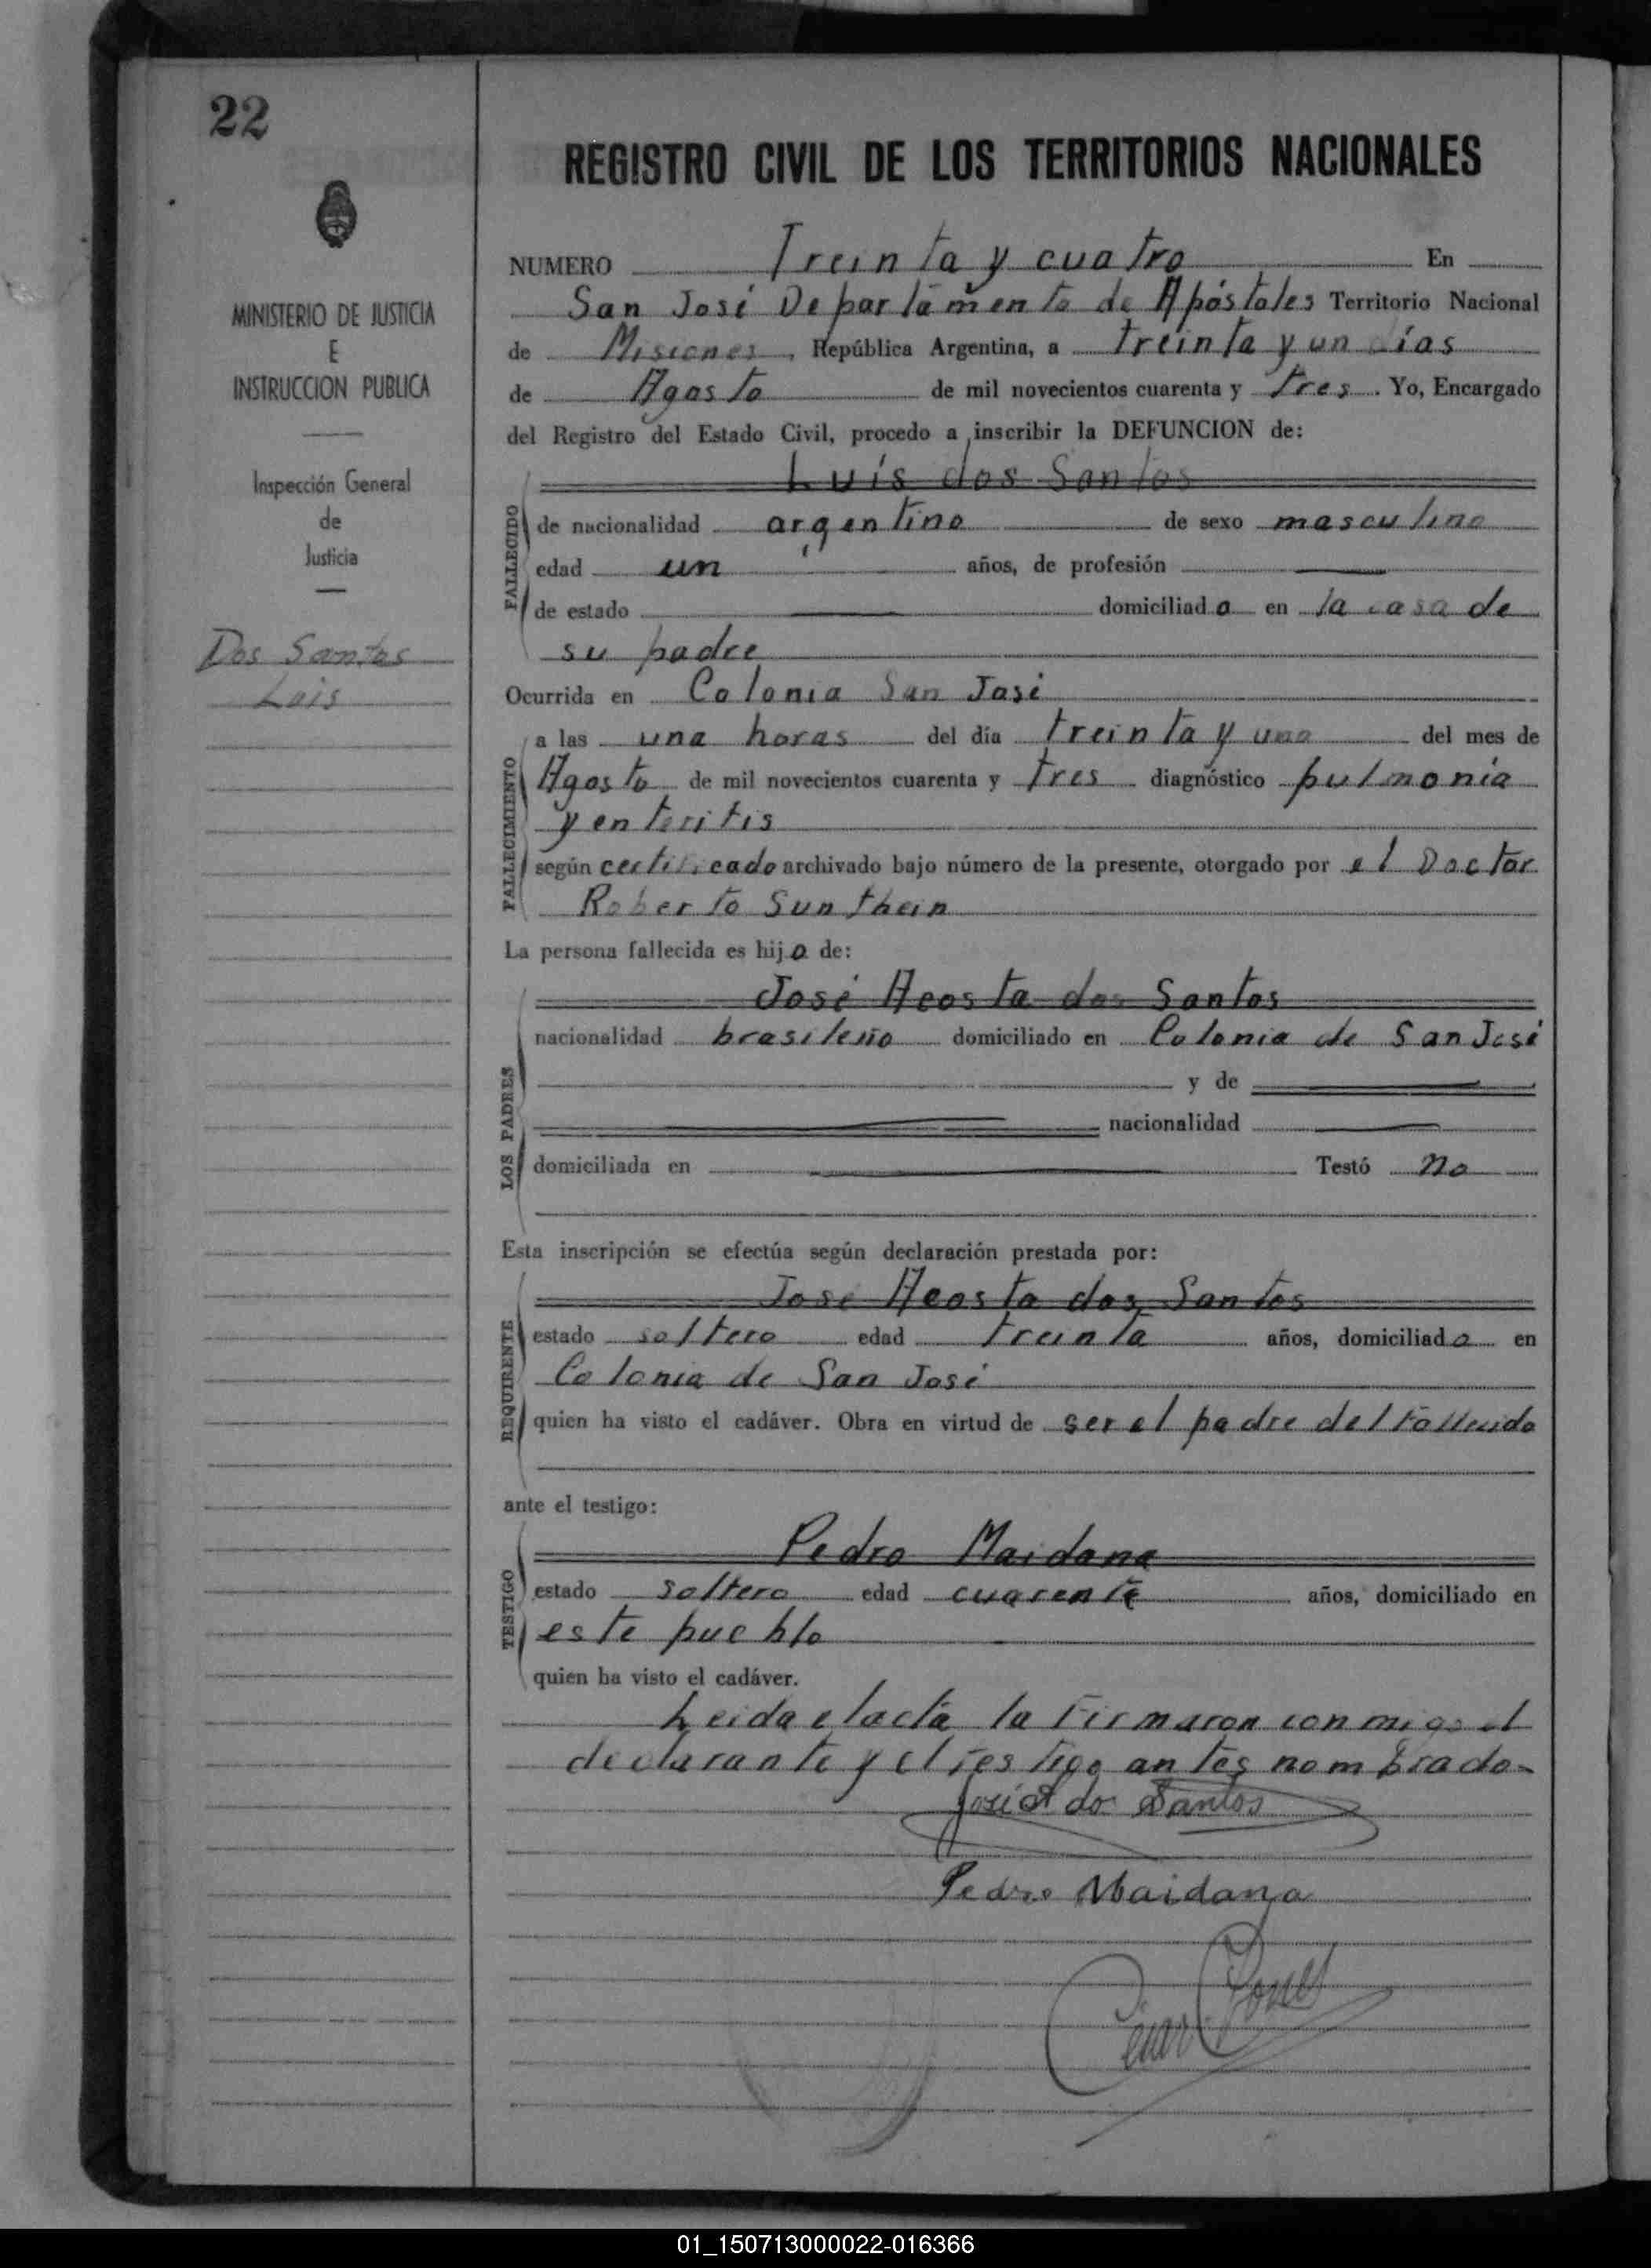 22
MINISTERIO DE JUSTICIA
E
INSTRUCCION PUBLICA
Inspección General
de
Justicia
Dos Santos
Luis
REGISTRO CIVIL DE LOS TERRITORIOS NACIONALES
NUMERO Treinta y cuatro En
San José Departamento de Apóstoles Territorio Nacional
de Misiones, República Argentina, a treinta y un días
de Agosto de mil novecientos cuarenta y tres. Yo, Encargado
del Registro del Estado Civil, procedo a inscribir la DEFUNCION de:
Luis dos Santos
FALLECIDO
de nacionalidad argentino de sexo masculino
edad un años, de profesión
de estado domiciliado en la casa de
su padre
Ocurrida en Colonia San José
FALLECIMIENTO
a las una horas del día treinta y uno del mes de
Agosto de mil novecientos cuarenta y tres diagnóstico pulmonía
y enteritis
según certificado archivado bajo número de la presente, otorgado por el Doctor
Roberto Sunthein
La persona fallecida es hijo de:
LOS PADRES
José Acosta dos Santos
nacionalidad brasileño domiciliado en Colonia de San José
y de
nacionalidad
domiciliada en Testó no
Esta inscripción se efectúa según declaración prestada por:
REQUIRENTE
José Acosta dos Santos
estado soltero edad treinta años, domiciliado en
Colonia de San José
quien ha visto el cadáver. Obra en virtud de ser el padre del fallecido
ante el testigo:
TESTIGO
Pedro Maidana
estado soltero edad cuarenta años, domiciliado en
este pueblo
quien ha visto el cadáver.
Leida el acta la firmaron conmigo el
declarante y el testigo antes nombrado-
José A dos Santos
Pedro Maidana
01_150713000022-016366